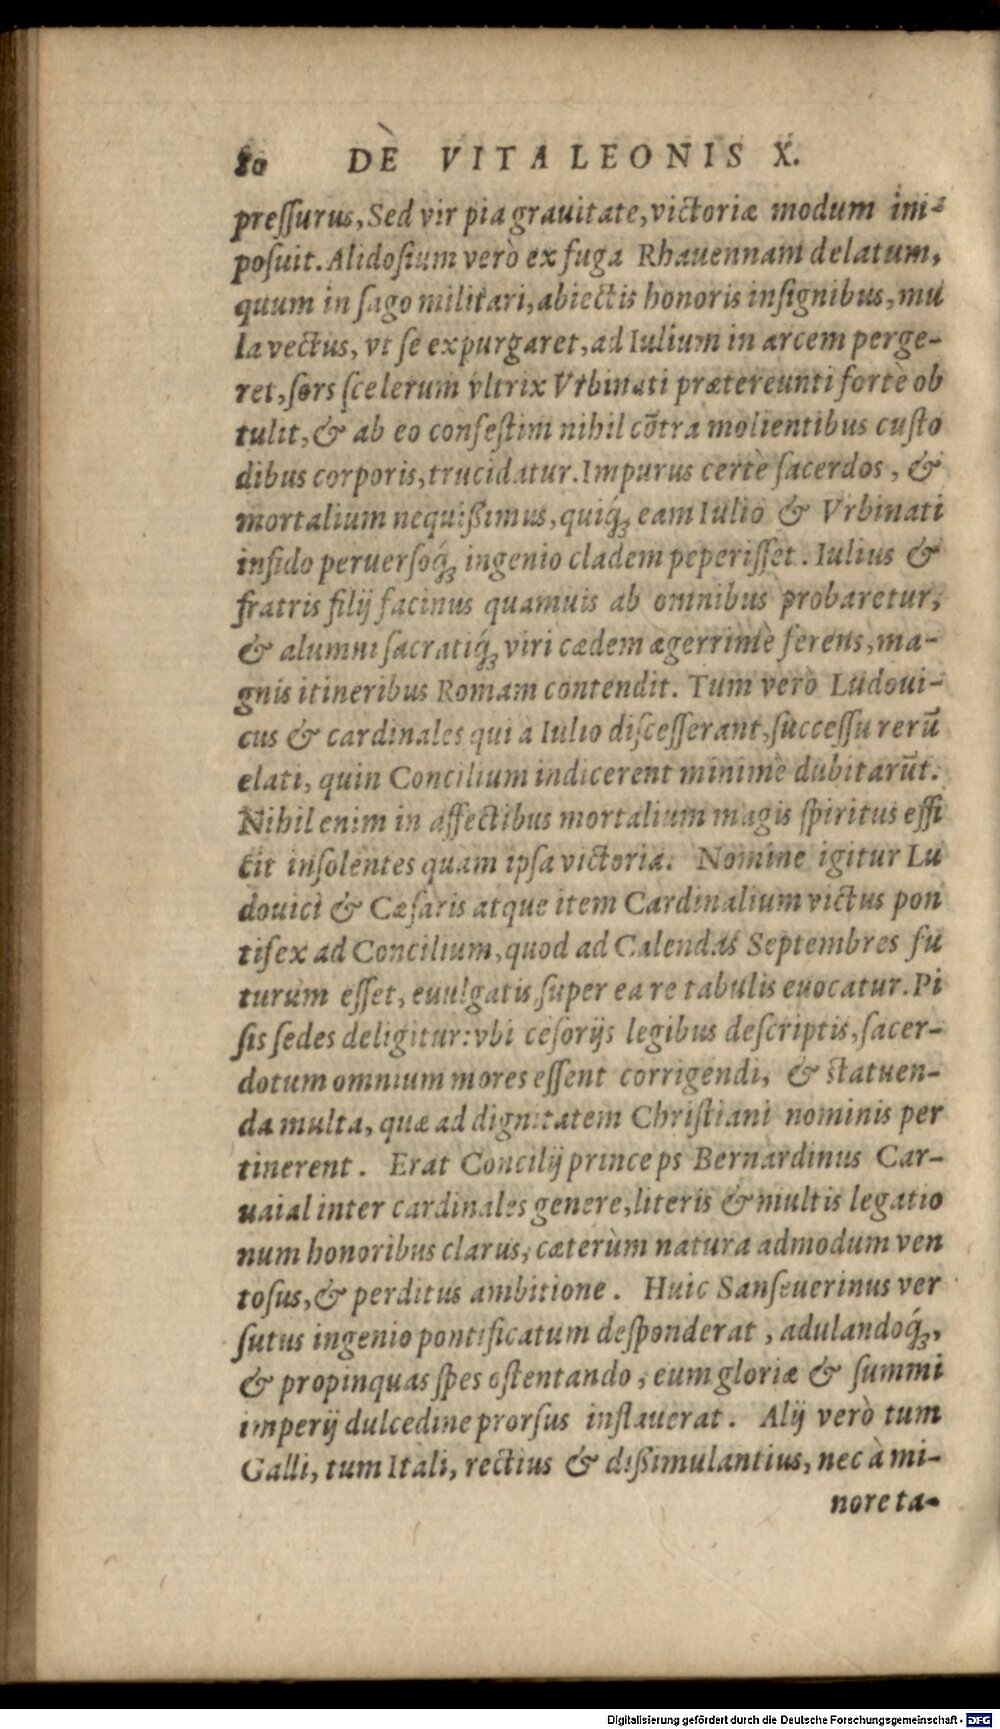 80 DE VITA LEONIS X.
preſſurus, Sed vir pia grauitate, victoriæ modum im-
poſuit. Alidoſium verò ex fuga Rhauennam delatum,
quum in ſago militari, abiectis honoris inſignibus, mu
la vectus, vt ſe expurgaret, ad Iulium in arcem perge-
ret, ſors ſcelerum vltrix Vrbinati prætereunti fortè ob
tulit, & ab eo confeſtim nihil cõtra molientibus cuſto
dibus corporis, trucidatur. Impurus certè ſacerdos, &
mortalium nequißimus, quiq́ꝫ eam Iulio & Vrbinati
infido peruerſoq́ꝫ ingenio cladem peperiſſet. Iulius &
fratris filij facinus quamuis ab omnibus probaretur,
& alumni ſacratiq́ꝫ viri cædem ægerrimè ferens, ma-
gnis itineribus Romam contendit. Tum verò Ludoui-
cus & cardinales qui à Iulio diſceſſerant, ſucceſſu rerũ
elati, quin Concilium indicerent minimè dubitarũt.
Nihil enim in affectibus mortalium magis ſpiritus effi
cit inſolentes quàm ipſa victoria. Nomine igitur Lu
douici & Cæſaris atque item Cardinalium victus pon
tifex ad Concilium, quod ad Calendas Septembres fu
turum eſſet, euulgatis ſuper ea re tabulis euocatur. Pi
ſis ſedes deligitur: vbi cẽſorijs legibus deſcriptis, ſacer-
dotum omnium mores eſſent corrigendi, & ſtatuen-
da multa, quæ ad dignitatem Chriſtiani nominis per
tinerent. Erat Concilij princeps Bernardinus Car-
uaial inter cardinales genere, literis & multis legatio
num honoribus clarus, cæterùm natura admodum ven
toſus, & perditus ambitione. Huic Sanſeuerinus ver
ſutus ingenio pontificatum deſponderat, adulandoq́ꝫ,
& propinquas ſpes oſtentando, eum gloriæ & ſummi
imperij dulcedine prorſus inflauerat. Alij verò tum
Galli, tum Itali, rectius & dißimulantius, nec à mi-
nore ta-
Digitalisierung gefördert durch die Deutsche Forschungsgemeinschaft - DFG